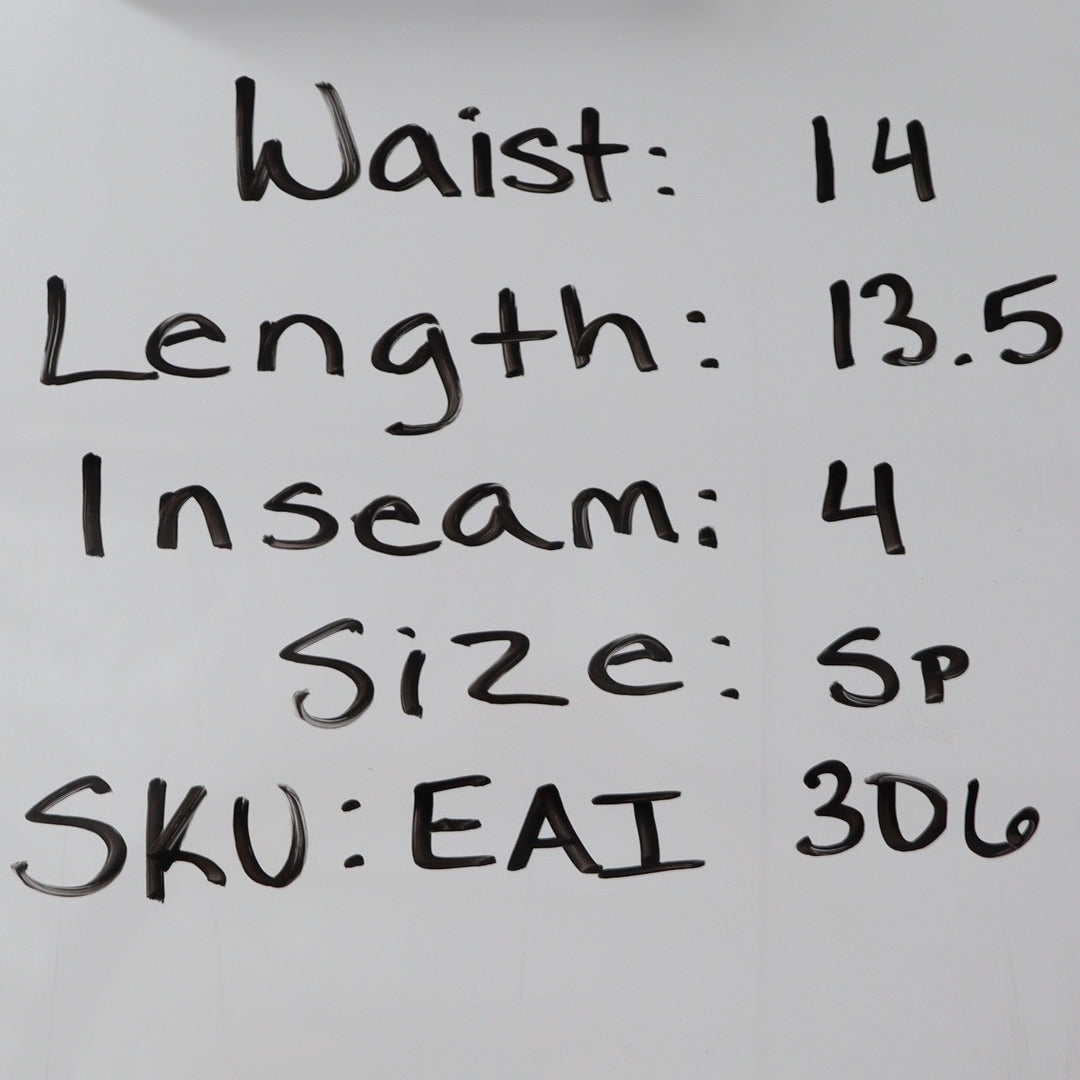 Waist: 14
Length: 13.5
Inseam: 4
Size: SP
SKU: EAI 306